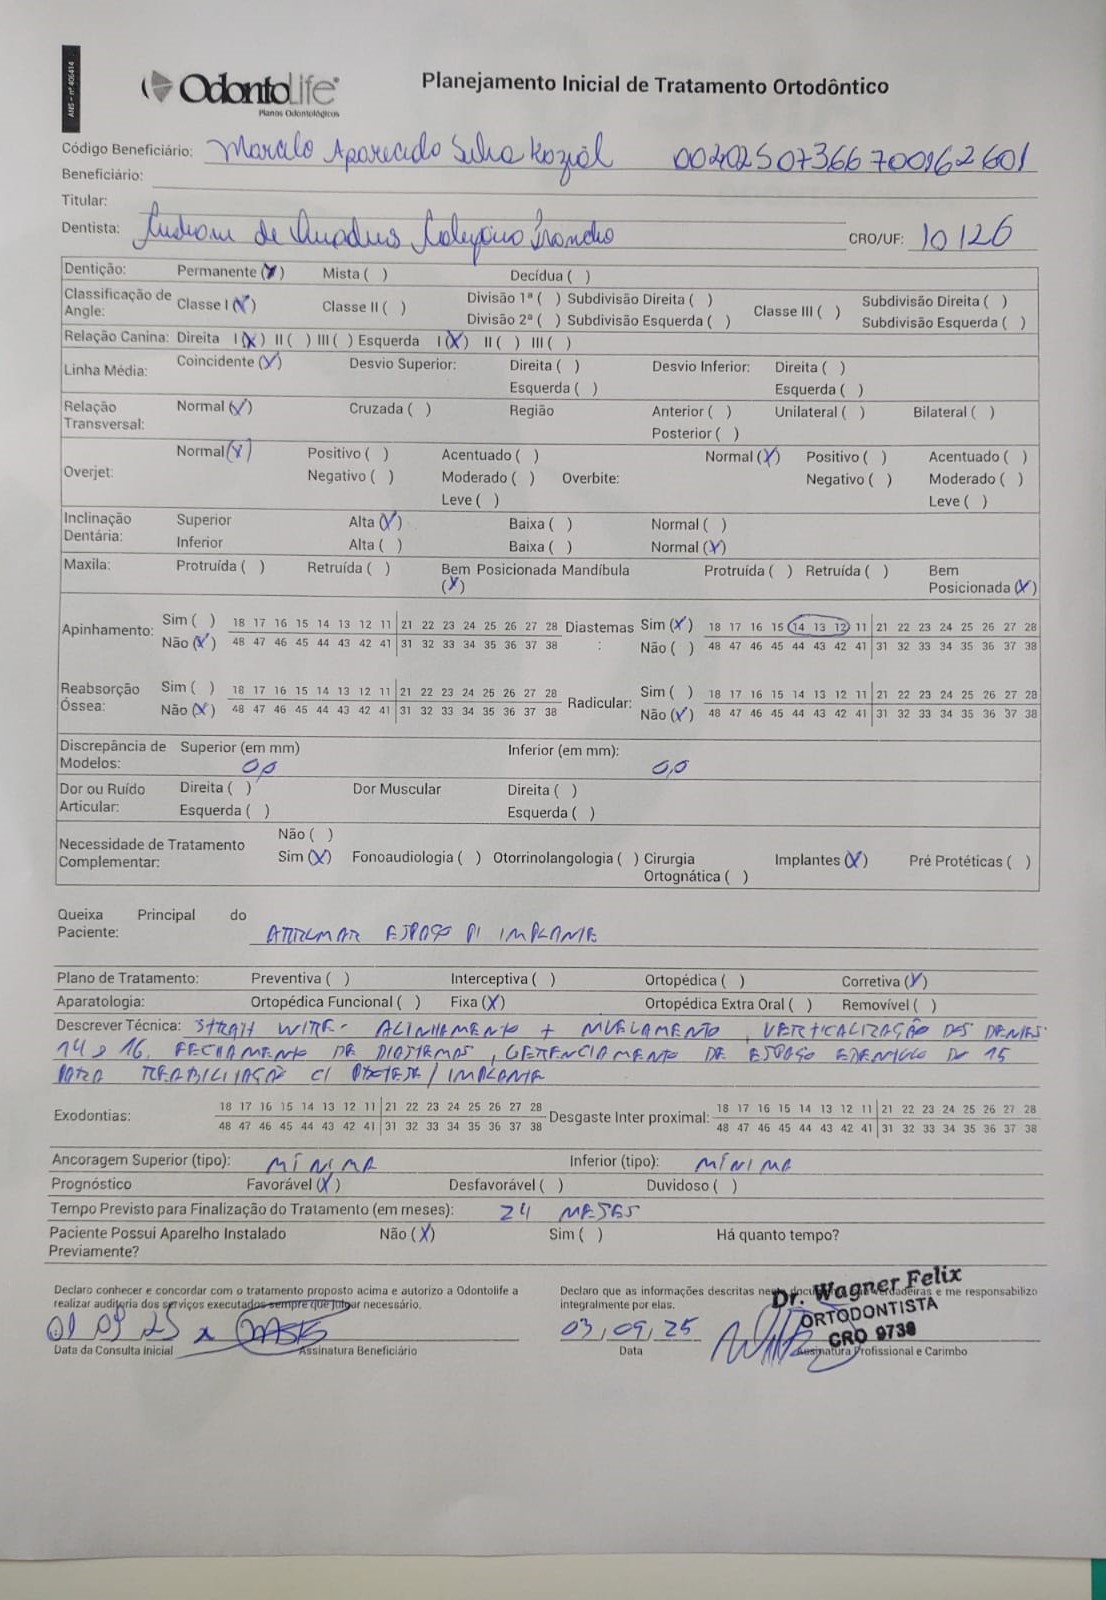 ANS - nº 406414
OdontoLife
Planos Odontológicos
Planejamento Inicial de Tratamento Ortodôntico
Código Beneficiário: Marcelo Aparecido Silva Koziel 00402507366700162601
Beneficiário:
Titular:
Dentista: de CRO/UF: 10126
Dentição: Permanente (X) Mista ( ) Decídua ( )
Classificação de Angle: Classe I (X) Classe II ( ) Divisão 1ª ( ) Subdivisão Direita ( ) Classe III ( ) Subdivisão Direita ( )
Divisão 2ª ( ) Subdivisão Esquerda ( ) Subdivisão Esquerda ( )
Relação Canina: Direita I (X) II ( ) III ( ) Esquerda I (X) II ( ) III ( )
Linha Média: Coincidente (X) Desvio Superior: Direita ( ) Desvio Inferior: Direita ( )
Esquerda ( ) Esquerda ( )
Relação Transversal: Normal (X) Cruzada ( ) Região Anterior ( ) Unilateral ( ) Bilateral ( )
Posterior ( )
Overjet: Normal (X) Positivo ( ) Acentuado ( ) Overbite: Normal (X) Positivo ( ) Acentuado ( )
Negativo ( ) Moderado ( ) Negativo ( ) Moderado ( )
Leve ( ) Leve ( )
Inclinação Dentária: Superior Alta (X) Baixa ( ) Normal ( )
Inferior Alta ( ) Baixa ( ) Normal (X)
Maxila: Protruída ( ) Retruída ( ) Bem Posicionada (X) Mandíbula Protruída ( ) Retruída ( ) Bem Posicionada (X)
Apinhamento: Sim ( ) 18 17 16 15 14 13 12 11 21 22 23 24 25 26 27 28 Diastemas: Sim (X) 18 17 16 15 14 13 12 11 21 22 23 24 25 26 27 28
Não (X) 48 47 46 45 44 43 42 41 31 32 33 34 35 36 37 38 Não ( ) 48 47 46 45 44 43 42 41 31 32 33 34 35 36 37 38
Reabsorção Óssea: Sim ( ) 18 17 16 15 14 13 12 11 21 22 23 24 25 26 27 28 Radicular: Sim ( ) 18 17 16 15 14 13 12 11 21 22 23 24 25 26 27 28
Não (X) 48 47 46 45 44 43 42 41 31 32 33 34 35 36 37 38 Não (X) 48 47 46 45 44 43 42 41 31 32 33 34 35 36 37 38
Discrepância de Modelos: Superior (em mm) 0,0 Inferior (em mm): 0,0
Dor ou Ruído Articular: Direita ( ) Dor Muscular Direita ( )
Esquerda ( ) Esquerda ( )
Necessidade de Tratamento Complementar: Não ( )
Sim (X) Fonoaudiologia ( ) Otorrinolangologia ( ) Cirurgia Ortognática ( ) Implantes (X) Pré Protéticas ( )
Queixa Principal do Paciente: ARRUMAR ESPAÇO P/ IMPLANTE
Plano de Tratamento: Preventiva ( ) Interceptiva ( ) Ortopédica ( ) Corretiva (X)
Aparatologia: Ortopédica Funcional ( ) Fixa (X) Ortopédica Extra Oral ( ) Removível ( )
Descrever Técnica: WIRE - ALINHAMENTO + NIVELAMENTO, VERTICALIZAÇÃO DOS DENTES
14 e 16, FECHAMENTO DE DIASTEMAS, GERENCIAMENTO DE ESPAÇO EDENTULO DO 15
PARA REABILITAÇÃO C/ PROTESE/IMPLANTE
Exodontias: 18 17 16 15 14 13 12 11 21 22 23 24 25 26 27 28 Desgaste Inter proximal: 18 17 16 15 14 13 12 11 21 22 23 24 25 26 27 28
48 47 46 45 44 43 42 41 31 32 33 34 35 36 37 38 48 47 46 45 44 43 42 41 31 32 33 34 35 36 37 38
Ancoragem Superior (tipo): MÍNIMA Inferior (tipo): MÍNIMA
Prognóstico Favorável (X) Desfavorável ( ) Duvidoso ( )
Tempo Previsto para Finalização do Tratamento (em meses): 24 MESES
Paciente Possui Aparelho Instalado Previamente? Não (X) Sim ( ) Há quanto tempo?
Declaro conhecer e concordar com o tratamento proposto acima e autorizo a Odontolife a
realizar auditoria dos serviços executados sempre que julgar necessário.
Declaro que as informações descritas neste documento são verdadeiras e me responsabilizo
integralmente por elas.
Dr. Wagner Felix
ORTODONTISTA
CRO 9738
01 09 25 x
03/09/25
Data da Consulta Inicial Assinatura Beneficiário Data Assinatura Profissional e Carimbo